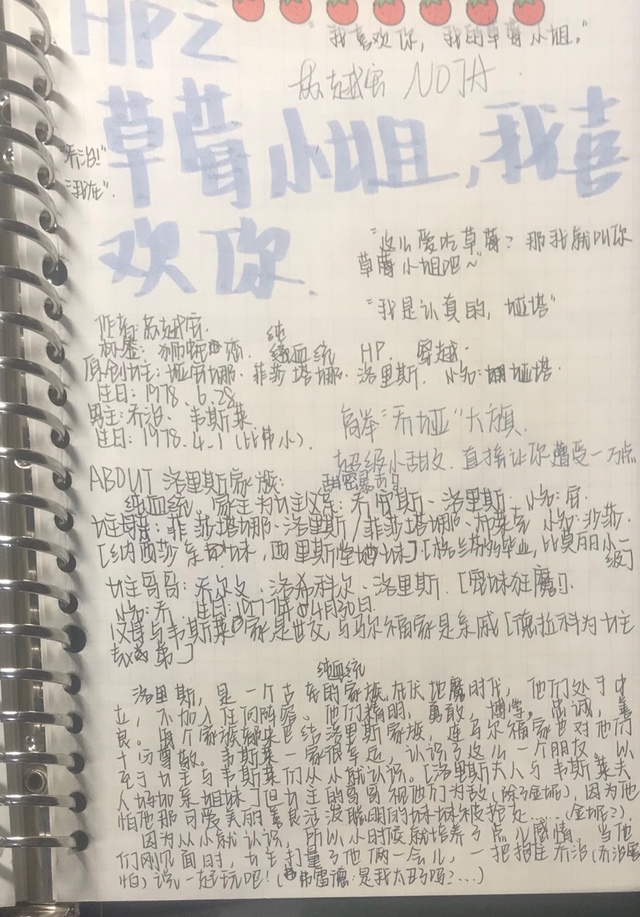 HP之
"我喜欢你，我的草莓小姐。"
苏越宸 NOJA.
草莓小姐，我喜
欢你.
"乔治！"
"我在".
"这么爱吃草莓？那我就叫你
草莓小姐吧~"
"我是认真的，娅塔"
作者：苏越宸.
标签：狮 纯血统 HP. 穿越.
原创女主：娅 娜·菲莎塔娜·洛里斯. 小名：娅塔.
生日：1978.6.28
男主：乔治·韦斯莱
生日：1978.4.1（比弗小）.
高举"乔娅"大旗.
超级小甜文.直接让你遭受一万点
甜蜜暴击
ABOUT 洛里斯家族：
纯血统 家主为女主父亲：乔 斯·洛里斯 小名：
女主母亲：菲莎塔娜·洛里斯/菲莎塔娜·布莱克 小名：菲莎.
[纳西莎亲姐妹，西里斯堂姐妹] [格兰芬多毕业，比莫丽小一
级]
女主哥哥：乔次文·洛希科尔·洛里斯. [宠妹狂魔].
小名：乔 生日：1977年04月30日.
父母与韦斯莱家是世交 与马尔福家是亲戚 [德拉科为女主
表弟]
纯血统
洛里斯，是一个古老的家族.在伏地魔时代，他们处于中
立，不加入任何阵容. 他们精明，勇敢，博学，忠诚，善
良. 每个家族都来巴结洛里斯家族，连马尔福家也对他们
十分尊敬. 韦斯莱一家很幸运，认识了这么一个朋友. 以
至于女主与韦斯莱们从小就认识. [洛里斯夫人与韦斯莱夫
人如亲姐妹] 但女主的哥哥视他们为敌（除了金妮），因为他
怕他那可爱美丽善良活泼聪明的妹妹被抢走……（金妮？）.
因为从小就认识，所以小时候就培养了点儿感情. 当他
们刚见面时，女主打量了他俩一会儿，一把抱住乔治（乔治
怕）说一起玩吧！（弗雷德：是我太丑了吗？…）